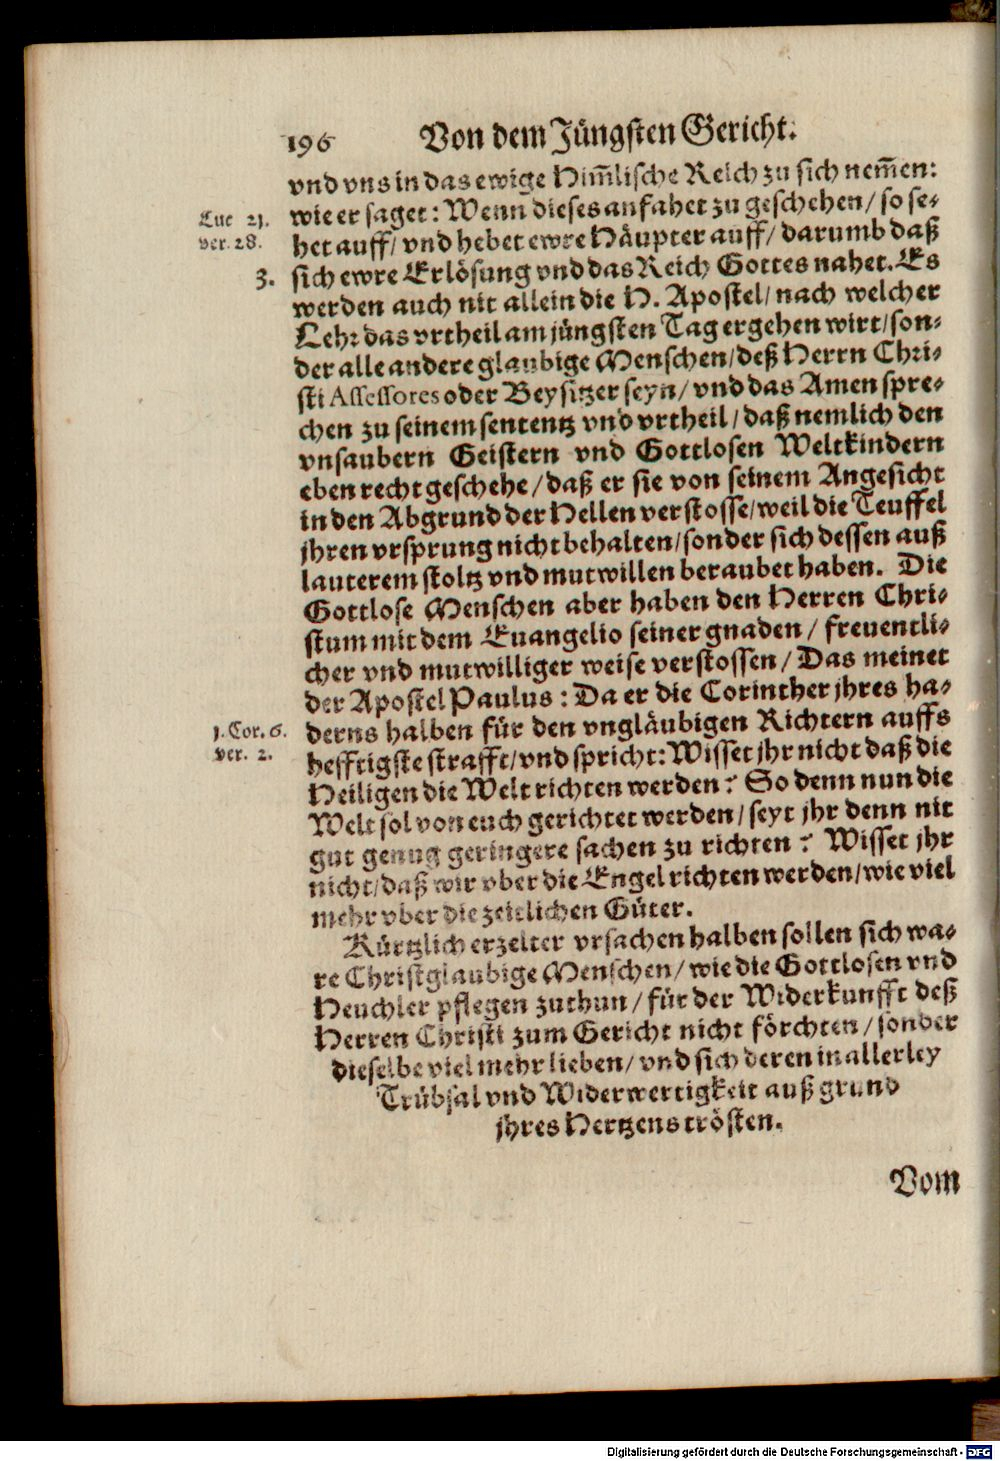 196 Von dem Jüngsten Gericht.
vnd vns in das ewige Him̃lische Reich zu sich nem̃en:
Luc 21. wie er saget: Wenn dieses anfahet zu geschehen/ so se-
ver. 28. het auff/ vnd hebet ewre Häupter auff/ darumb daß
3. sich ewre Erlösung vnd das Reich Gottes nahet. Es
werden auch nit allein die H. Apostel/ nach welcher
Lehr das vrtheil am jüngsten Tag ergehen wirt/ son-
der alle andere glaubige Menschen/ deß Herrn Chri-
sti Assessores oder Beysitzer seyn/ vnd das Amen spre-
chen zu seinem sententz vnd vrtheil/ daß nemlich den
vnsaubern Geistern vnd Gottlosen Weltkindern
eben recht geschehe/ daß er sie von seinem Angesicht
in den Abgrund der Hellen verstosse/ weil die Teuffel
jhren vrsprung nicht behalten/ sonder sich dessen auß
lauterem stoltz vnd mutwillen beraubet haben. Die
Gottlose Menschen aber haben den Herren Chri-
stum mit dem Euangelio seiner gnaden/ freuentli-
cher vnd mutwilliger weise verstossen/ Das meinet
der Apostel Paulus: Da er die Corinther jhres ha-
1. Cor. 6. derns halben für den vngläubigen Richtern auffs
ver. 2. hefftigste strafft/ vnd spricht: Wisset jhr nicht daß die
Heiligen die Welt richten werden? So denn nun die
Welt sol von euch gerichtet werden/ seyt jhr denn nit
gut genug geringere sachen zu richten? Wisset jhr
nicht/ daß wir vber die Engel richten werden/ wie viel
mehr vber die zeitlichen Güter.
Kürtzlich erzelter vrsachen halben sollen sich wa-
re Christglaubige Menschen/ wie die Gottlosen vnd
Heuchler pflegen zuthun/ für der Widerkunfft deß
Herren Christi zum Gericht nicht förchten/ sonder
dieselbe viel mehr lieben/ vnd sich deren in allerley
Trübsal vnd Widerwertigkeit auß grund
jhres Hertzens trösten.
Vom
Digitalisierung gefördert durch die Deutsche Forschungsgemeinschaft - DFG